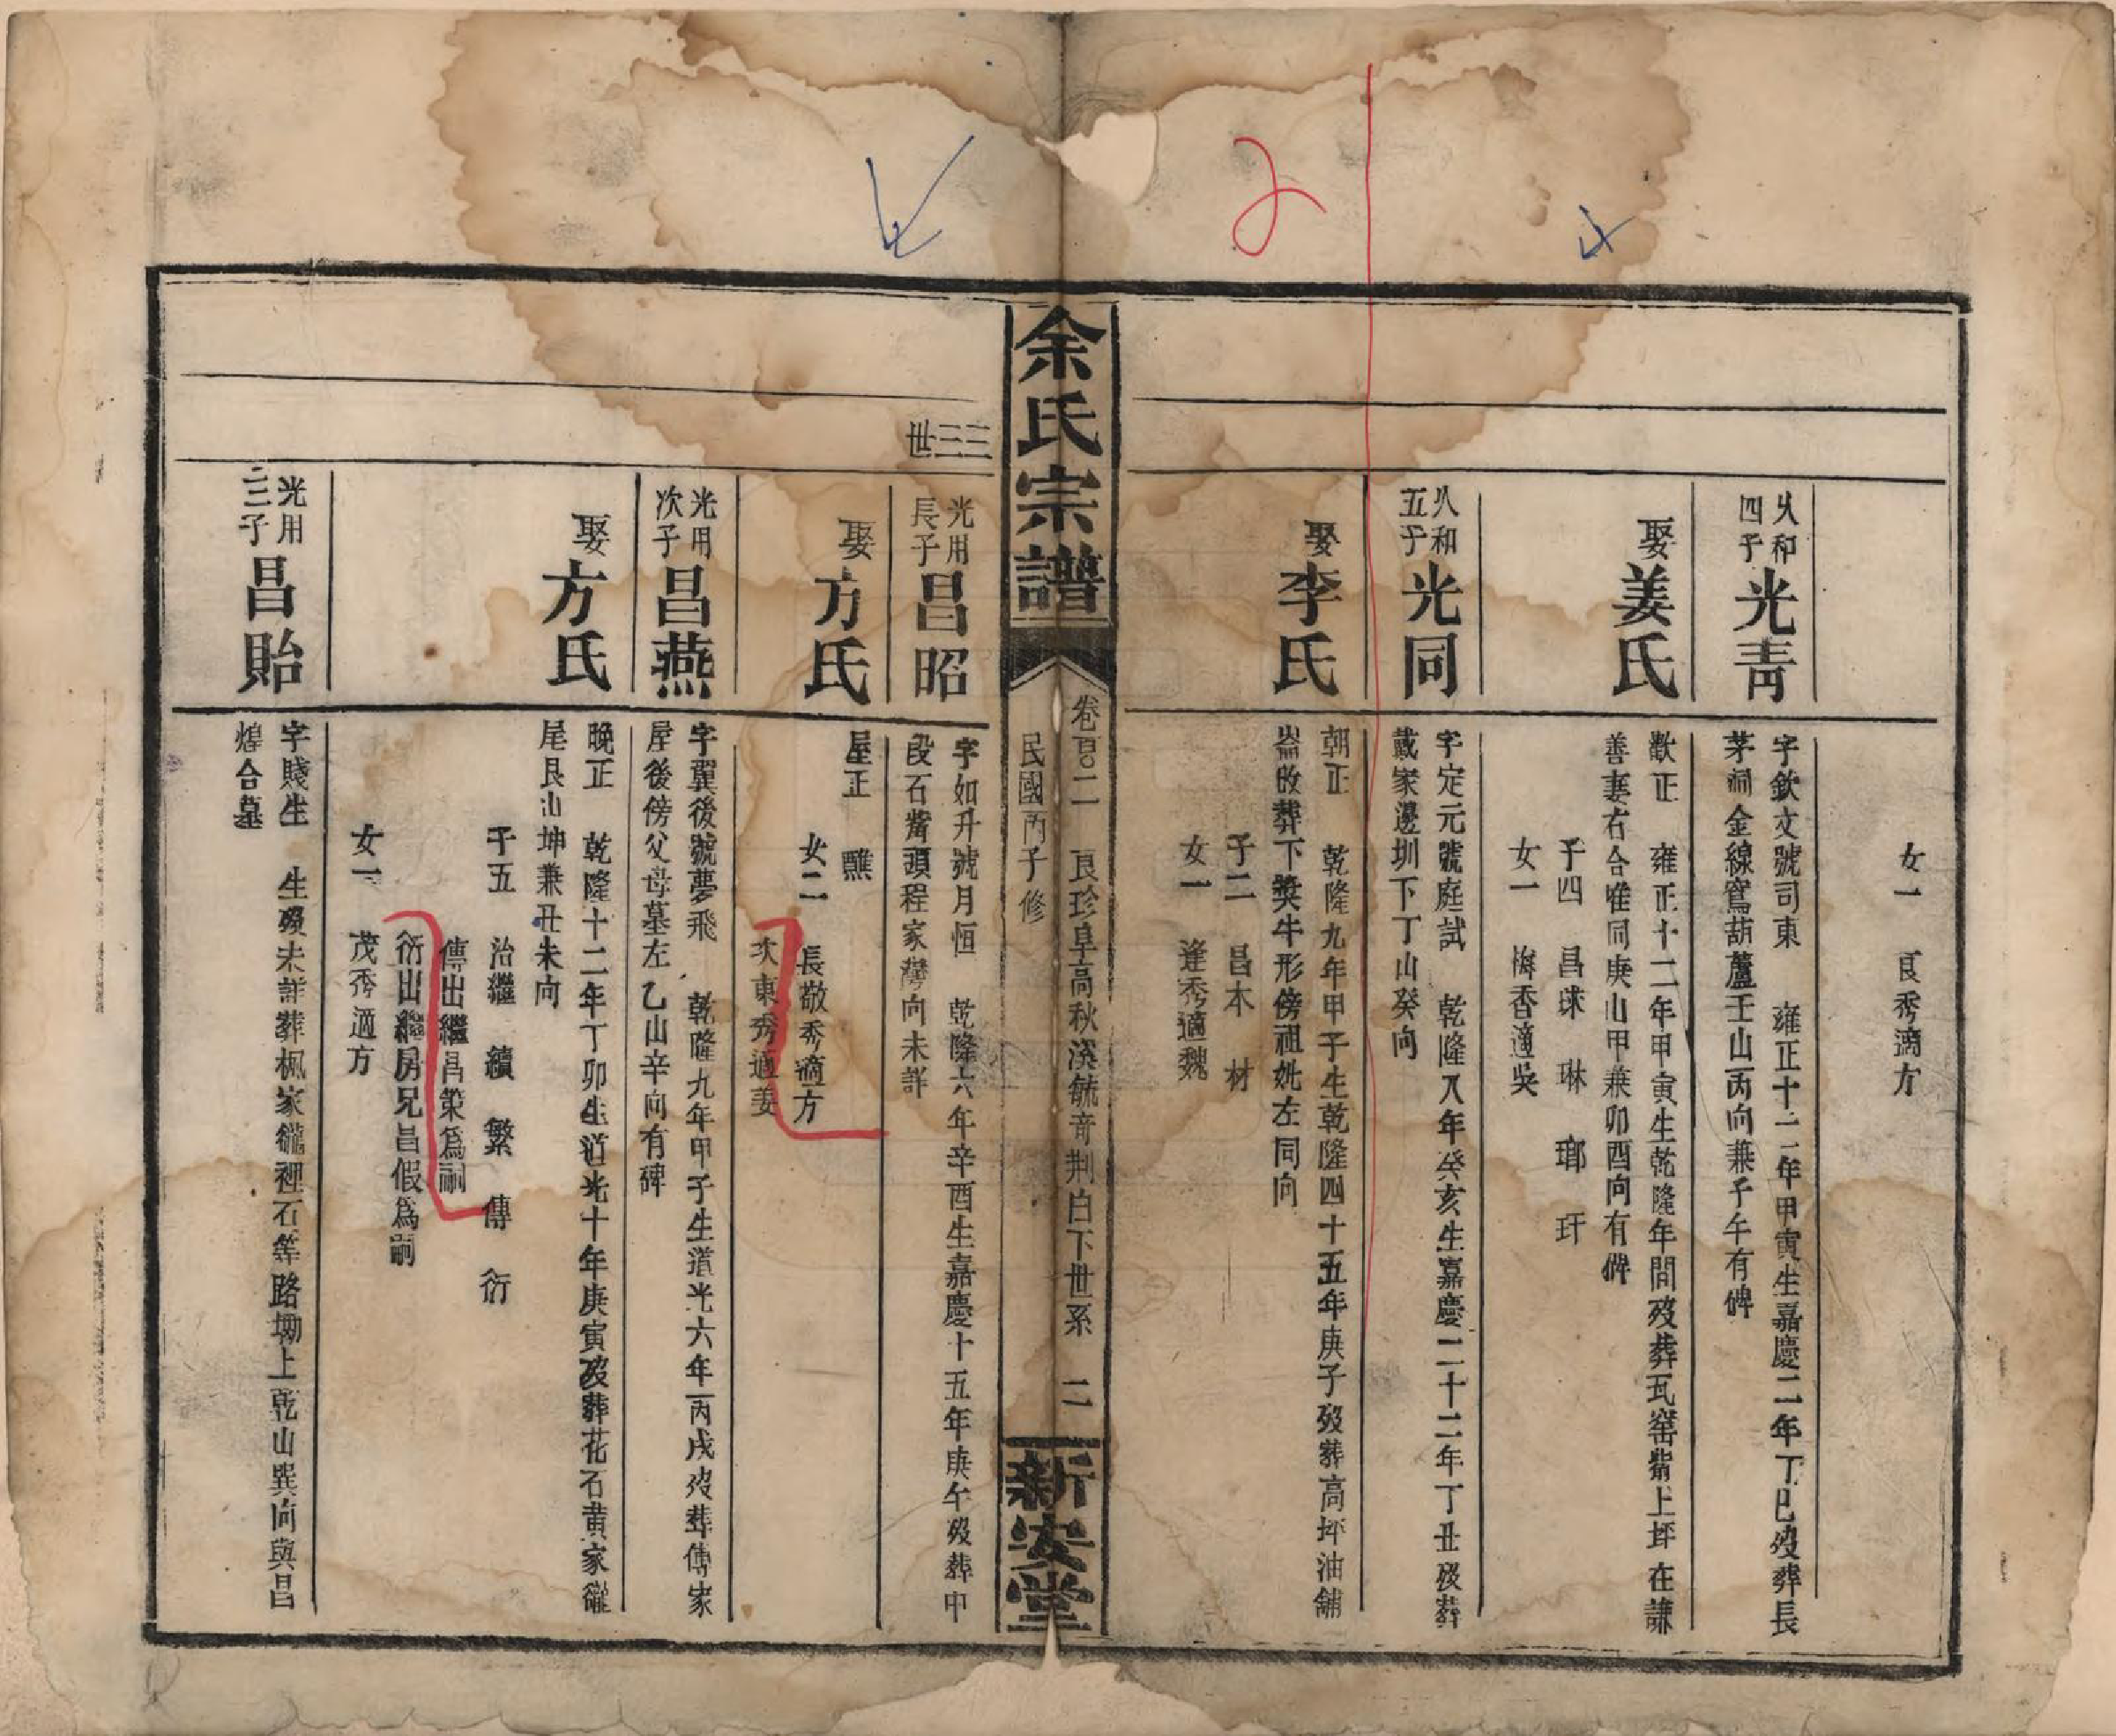 女一 良秀適方
久和四子光青
字欽文號司東 雍正十二年甲寅生嘉慶二年丁巳歿葬長
茅洞金線鴛葫蘆壬山丙向兼子午有碑
娶姜氏
歡正 雍正十二年甲寅生乾隆年間歿葬瓦窑嘴上坪在謙
善妻右合唯同庚山甲兼卯酉向有碑
子四 昌球 琳 瑯 玕
女一 梅香適吳
久和五子光同
字定元號庭試 乾隆八年癸亥生嘉慶二十二年丁丑歿葬
戴家邊圳下丁山癸向
娶李氏
朝正 乾隆九年甲子生乾隆四十五年庚子歿葬高坪油鋪
崙改葬下獎牛形傍祖妣左同向
子二 昌木 材
女一 逢秀適魏
余氏宗譜
卷百〇二 良珍阜高秋溪毓奇荆白下世系 二
民國丙子修
新安堂
三三世
光用長子昌昭
字如升號月恒 乾隆六年辛酉生嘉慶十五年庚午歿葬中
段石觜頭程家灣向未詳
娶方氏
星正 醮
女二 長敬秀適方
次東秀適姜
光用次子昌燕
字翼後號夢飛 乾隆九年甲子生道光六年丙戌歿葬傅家
屋後傍父母墓左乙山辛向有碑
娶方氏
晚正 乾隆十二年丁卯生道光十年庚寅歿葬花石黄家嶐
尾艮山坤兼丑未向
子五 治繼 續 繁 傳 衍
傳出繼昌策爲嗣
衍出繼房兄昌假爲嗣
女一 茂秀適方
光用三子昌貽
字賤生 生歿未詳葬楓家嶐裡石等路㘭上乾山巽向與昌
煌合墓